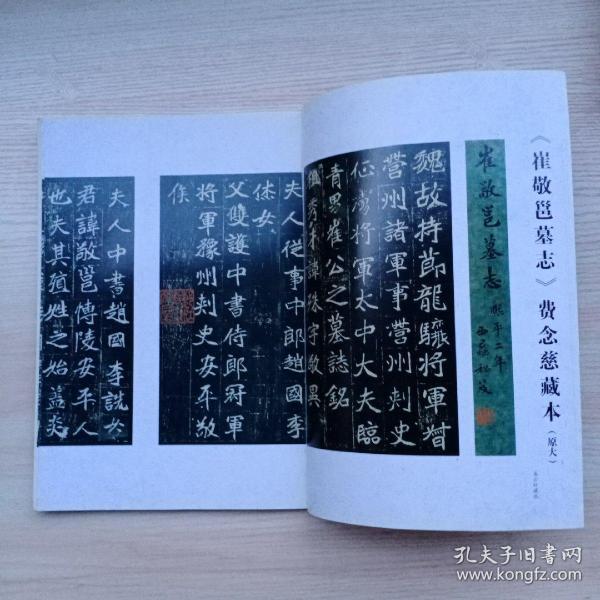 《崔敬邕墓志》费念慈藏本(原大)
崔敬邕墓志
熙平二年
西蠡秘笈
魏故持節龍驤將軍督
營州諸軍事營州刺史
征虜將軍太中大夫臨
青男崔公之墓誌銘
祖秀才諱殊字敬異
夫人從事中郎趙國李
烋女
父雙護中書侍郎冠軍
將軍豫州刺史安平敬
侯
夫人中書趙國李詵女
君諱敬邕博陵安平人
也夫其殖姓之始蓋炎
孔夫子旧书网
www.kongfz.com